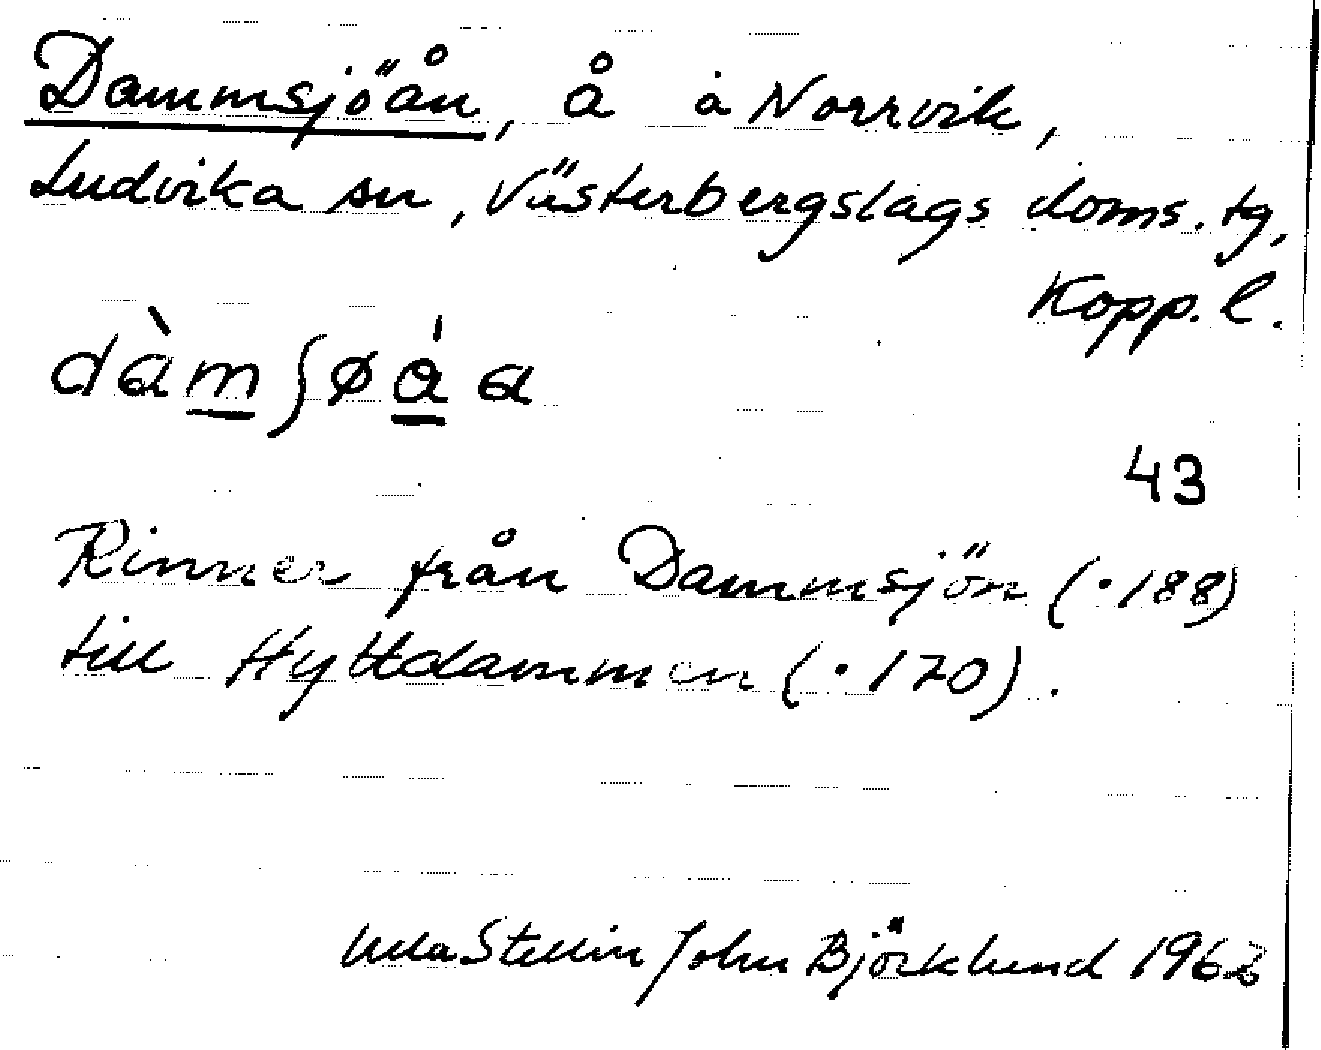 Dammsjöån, å å Norrvik,
Ludvika sn, Västerbergslags doms. tg,
Kopp. l.
dàmʃøåa
43
Rinner från Dammsjön (·188)
till Hyttdammen (·170).
Stellin John Björklund 1962